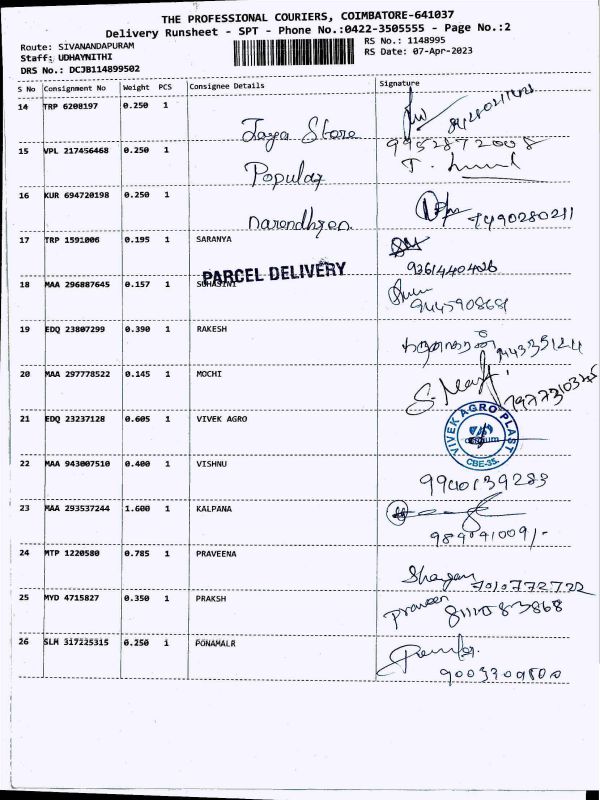 THE PROFESSIONAL COURIERS, COIMBATORE-641037
Delivery Runsheet - SPT - Phone No.:0422-3505555 - Page No.:2
Route: SIVANANDAPURAM RS No.: 1148995
Staff: UDHAYNITHI RS Date: 07-Apr-2023
DRS No.: DCJB114899502
S No Consignment No Weight PCS Consignee Details Signature
14 TRP 6208197 0.250 1
Jaya Store
15 VPL 217456468 0.250 1 9952872008
Popular
16 KUR 694720198 0.250 1
Narendhren 7490280211
17 TRP 1591006 0.195 1 SARANYA
9361440426
PARCEL DELIVERY
18 MAA 296887645 0.157 1 SUHASINI
9445908681
19 EDQ 23807299 0.390 1 RAKESH
20 MAA 297778522 0.145 1 MOCHI
21 EDQ 23237128 0.605 1 VIVEK AGRO
VIVEK AGRO PLAST
CBE-35.
22 MAA 943007510 0.400 1 VISHNU
9940139283
23 MAA 293537244 1.600 1 KALPANA
24 MTP 1220580 0.785 1 PRAVEENA
7010772722
25 MYD 4715827 0.350 1 PRAKSH
praveen 8111083868
26 SLM 317225315 0.250 1 PONAMALR